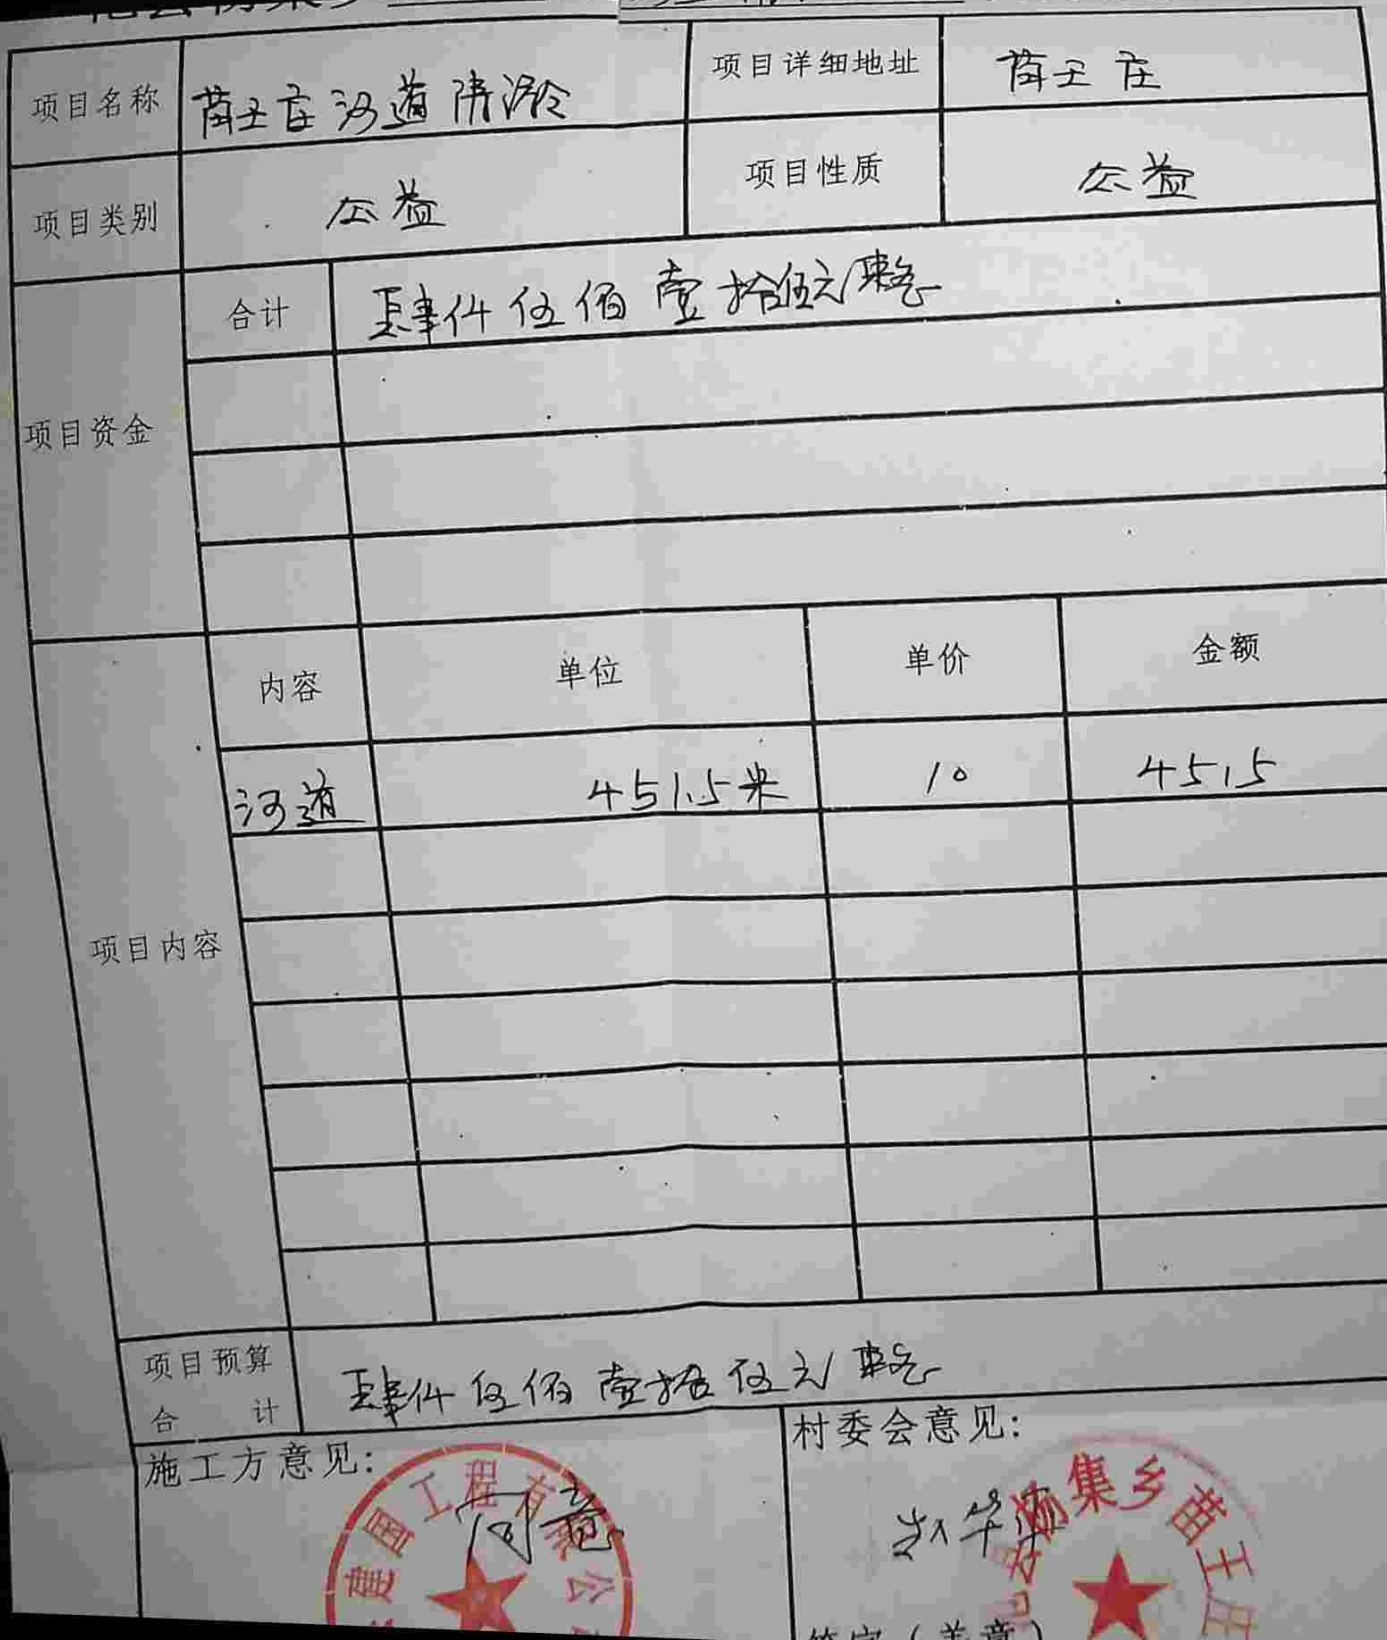 项目名称 苗王庄河道清淤 项目详细地址 苗王庄
项目类别 公益 项目性质 公益
项目资金 合计 肆仟伍佰壹拾伍元整
项目内容 内容 单位 单价 金额
河道 451.5米 10 4515
项目预算
合计 肆仟伍佰壹拾伍元整
施工方意见： 村委会意见：
建国工程有限公
同意
集乡苗王庄
签字（盖章）